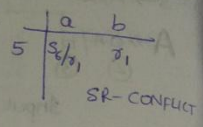 a b
5 S6/r1 r1
SR-CONFLICT